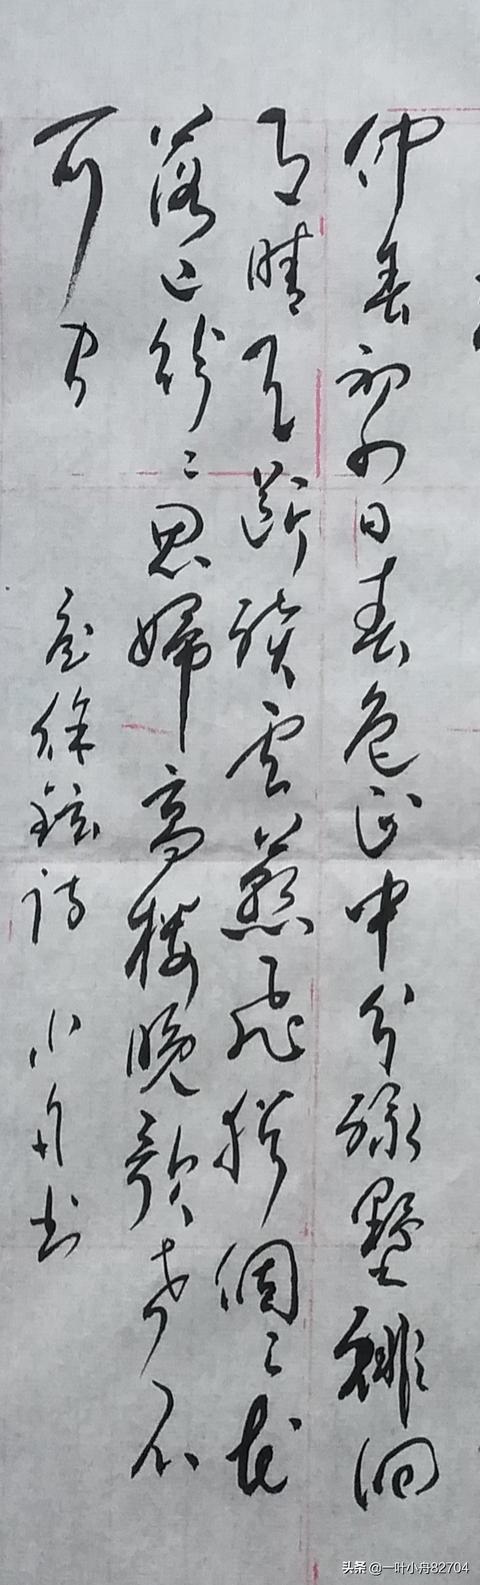 仲春初四日春色正中分绿墅徘徊
月晴天断续云燕飞犹個々花
落已纷々思婦高楼晚歌声不
可闻
录徐铉诗 小舟书
头条 @一叶小舟82704